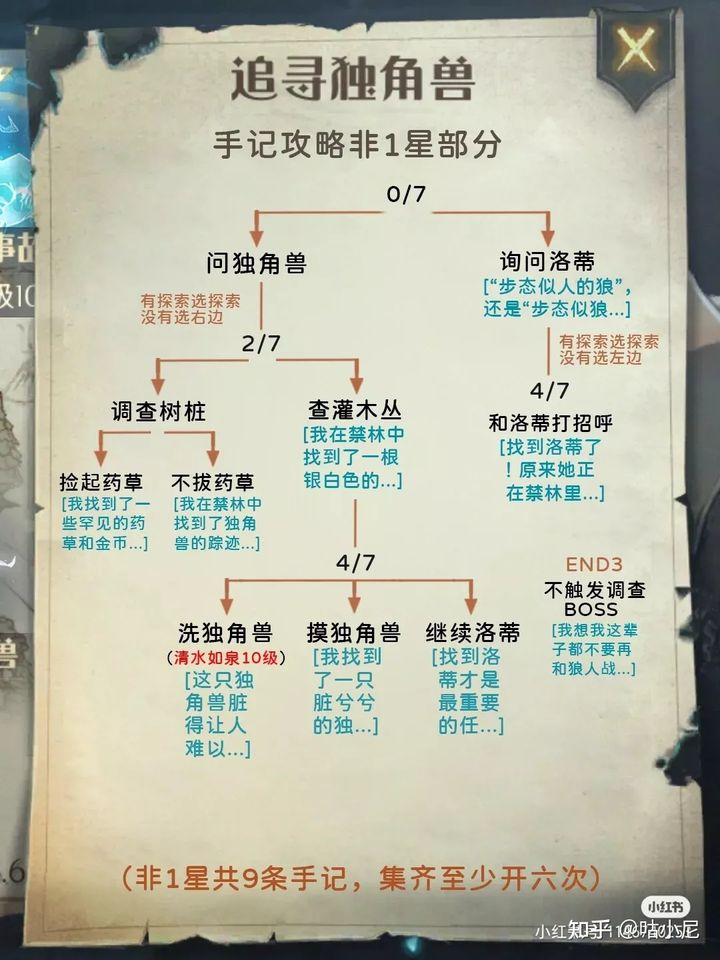 追寻独角兽
手记攻略非1星部分
0/7
问独角兽
询问洛蒂
[“步态似人的狼”，
还是“步态似狼...]
有探索选探索
没有选右边
有探索选探索
没有选左边
2/7
4/7
调查树桩
查灌木丛
[我在禁林中
找到了一根
银白色的...]
和洛蒂打招呼
[找到洛蒂了
！原来她正
在禁林里...]
捡起药草
[我找到了一
些罕见的药
草和金币...]
不拔药草
[我在禁林中
找到了独角
兽的踪迹...]
4/7
END3
不触发调查
BOSS
[我想我这辈
子都不要再
和狼人战...]
洗独角兽
（清水如泉10级）
[这只独
角兽脏
得让人
难以...]
摸独角兽
[我找到
了一只
脏兮兮
的独...]
继续洛蒂
[找到洛
蒂才是
最重要
的任...]
（非1星共9条手记，集齐至少开六次）
事故
级10
兽
.6
小红书
小红书号
知乎 @咕小尼